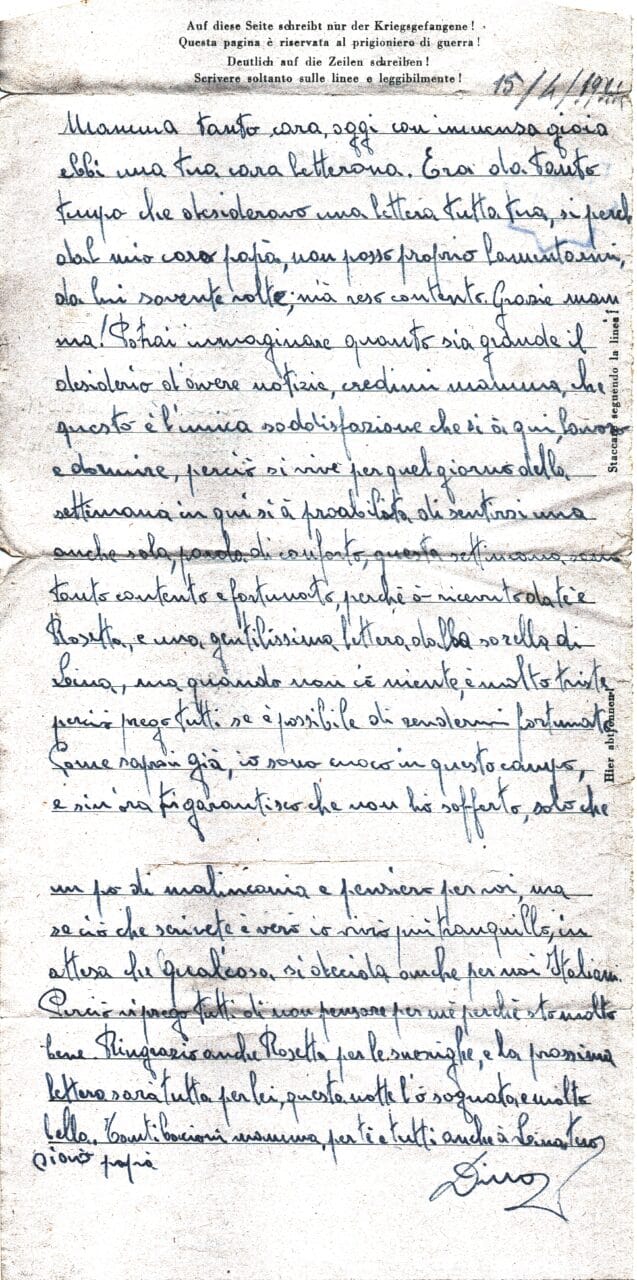 Auf diese Seite schreibt nur der Kriegsgefangene!
Questa pagina è riservata al prigioniero di guerra!
Deutlich auf die Zeilen schreiben!
Scrivere soltanto sulle linee e leggibilmente!
15/4/194
Mamma tanto cara, oggi con immensa gioia
ebbi una tua cara letterona. Era da tanto
tempo che desideravo una lettera tutta tua, si perchè
dal mio caro papà, non posso proprio lamentarmi,
da lui sovente volte, mi à reso contento. Grazie mam
ma! Potrai immaginare quanto sia grande il
desiderio d'avere notizie, credimi mamma, che
questo è l'unica soddisfazione che si à qui, lavoro
e dormire, perciò si vive per quel giorno della
settimana in qui si à proabilità di sentirsi una
anche sola, parola di conforto, questa settimana sono
tanto contento e fortunato, perchè ò ricevuto da te e
Rosetta, e una gentilissima lettera dalla sorella di
Leina, ma quando non c'è niente, è molto triste
perciò prego tutti se è possibile di rendermi fortunato.
Come saprai già, io sono cuoco in questo campo,
e sin'ora ti garantisco che non ho sofferto, solo che
un po di malincania e pensiero per voi, ma
se ciò che scrivete è vero io vivrò più tranquillo, in
attesa che qualcosa, si decida anche per noi Italiani.
Perciò vi prego tutti di non pensare per mè perchè sto molto
bene. Ringrazio anche Rosetta per le sue righe, e la prossima
lettera sarà tutta per lei, questa notte l'ò sognata, e molto
bella. Tanti bacioni mamma, per tè e tutti anche à Leina
papà
Dino
Staccare seguendo la linea!
Hier abtrennen!